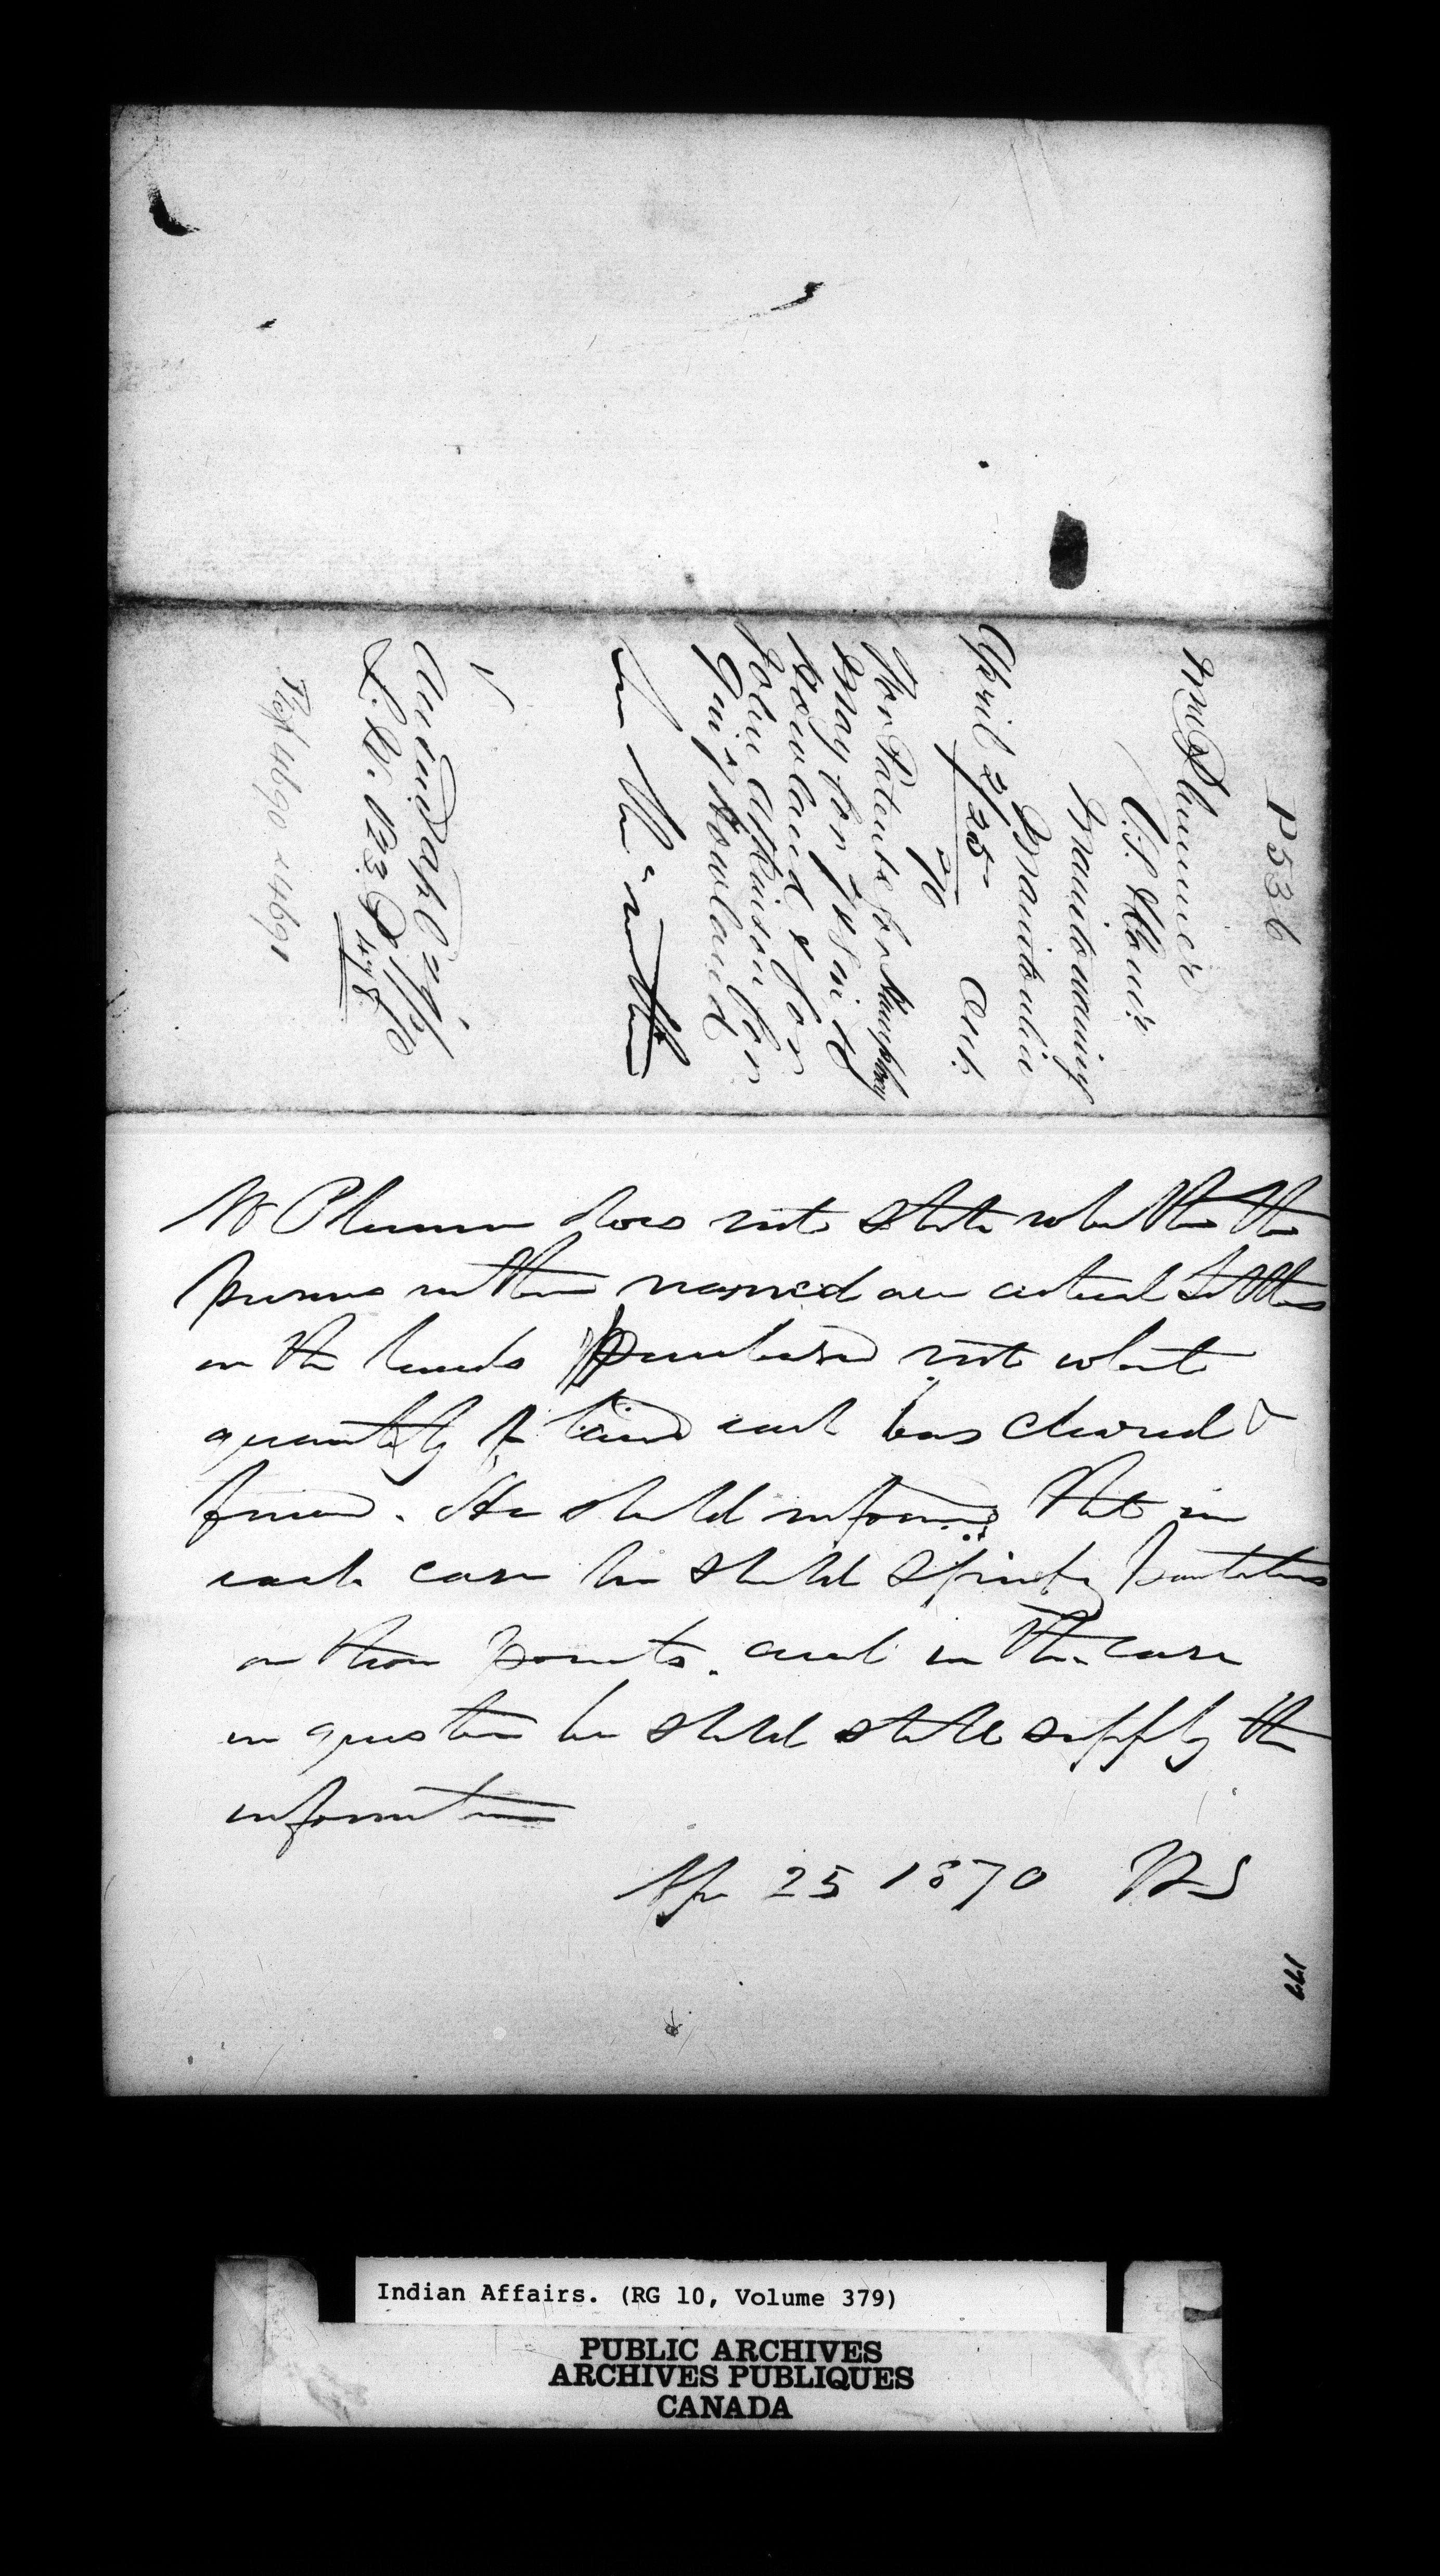 P536
Wm Plummer
V.S. Skene
Manitowaning
Manitoulin
April 2/25 Ont.
70
For Patents for Murphy
May for
Howland & for
John Atkinson for
Howland
See Mem: within
Answd April 27/70
L.B. 123 P. 148
Pat 4690 & 4691
Mr Plummer does not state whether the
persons within named are actual Settlers
on the lands purchased nor what
quantity of land each has cleared &
fenced. He should informed that in
each case he should specify particulars
on these points. and in the case
in question he should still supply the
information
Apr 25 1870 HS
177
Indian Affairs. (RG 10, Volume 379)
PUBLIC ARCHIVES
ARCHIVES PUBLIQUES
CANADA